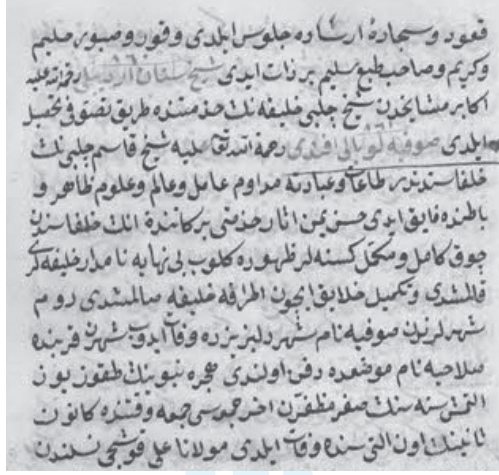 قعود و سجادۀ ارشاده جلوس ايلدى وقور و صبور حليم
وكريم وصاحب طبع سليم بر ذات ايدى شيخ سنان اردبيلى رحمة عليه
اكابر مشايخدن شيخ چلبى خليفه نك خدمتنده طريق تصوفى تحصيل
ايلدى صوفيه لو بالى افندى رحمة الله تعا عليه شيخ قاسم چلبى نك
خلفاسندندر طاعات وعباداته مداوم عامل وعالم وعلوم ظاهر و
باطنده فايق ايدى حسن يمن آثار خدمتى بركاتنده انك خلفاسندن
چوق كامل ومكمل كسنه لر ظهوره كلوب بى نهايه نامدار خليفه لرى
قالمشدى وتكميل خلايق ايچون اطرافه خليفه صالمشدى روم
شهرلرندن صوفيه نام شهر دلپذيرده وفات ايدوب شهرك قربنده
صلاحيه نام موضعده دفن اولندى هجره نبويه نك طقوز يوز
التمش سنه سنك صفر مظفرك اخر جمعه سى جمعه وقتنده كانون
ثانينك اون التى سنده وفات ايلدى مولانا على قوشجى نسلندن